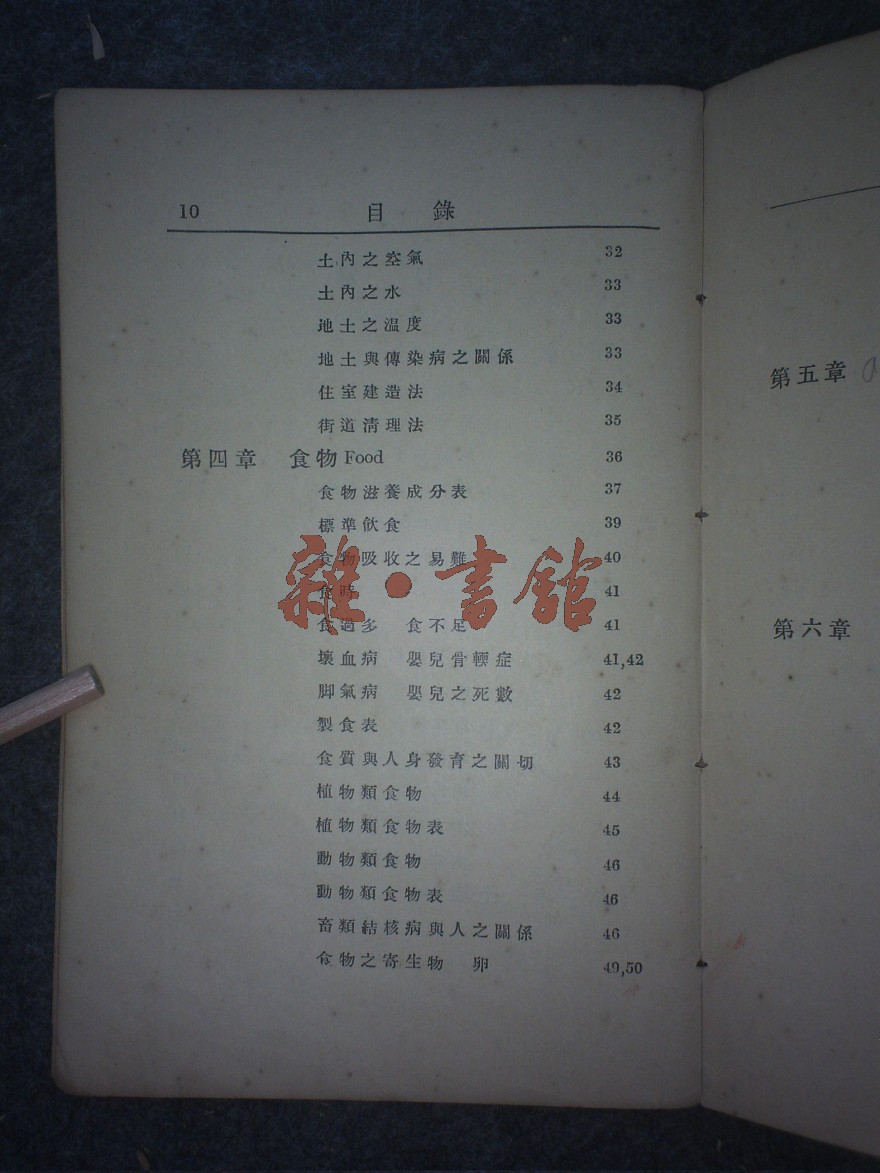 10 目錄
土內之空氣 32
土內之水 33
地土之温度 33
地土與傳染病之關係 33
住室建造法 34
街道清理法 35
第四章 食物 Food 36
食物滋養成分表 37
標準飲食 39
食物吸收之易難 40
食時 41
食過多 食不足 41
壞血病 嬰兒骨輭症 41,42
脚氣病 嬰兒之死數 42
製食表 42
食質與人身發育之關切 43
植物類食物 44
植物類食物表 45
動物類食物 46
動物類食物表 46
畜類結核病與人之關係 46
食物之寄生物 卵 49,50
雜·書館
第五章
第六章